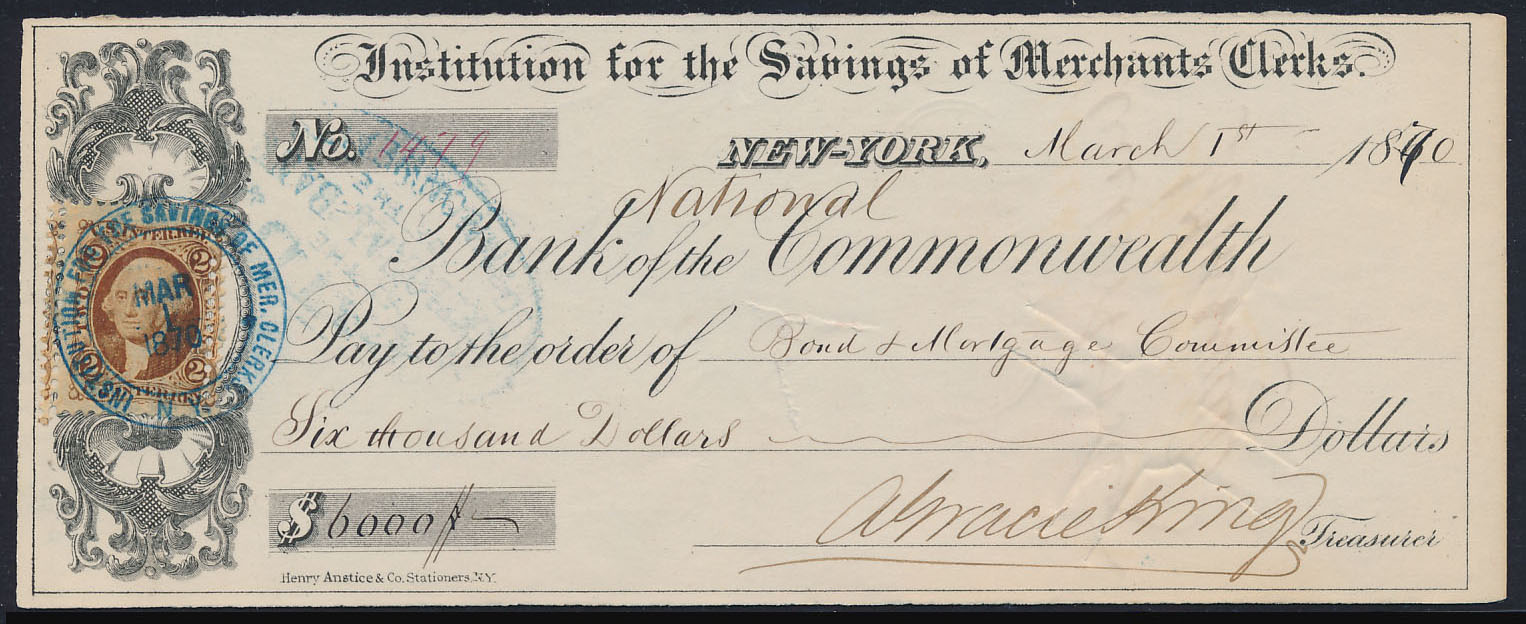 Institution for the Savings of Merchants Clerks.
No. 1479
NEW-YORK, March 1st 1870
National
Bank of the Commonwealth
Pay to the order of Bond & Mortgage Committee
Six thousand Dollars Dollars
$6000
A Gracie King Treasurer
Henry Anstice & Co. Stationers, N.Y.
INSTITUTION FOR THE SAVINGS OF MER. CLERKS
N.Y.
MAR
1
1870
2 2
2 2